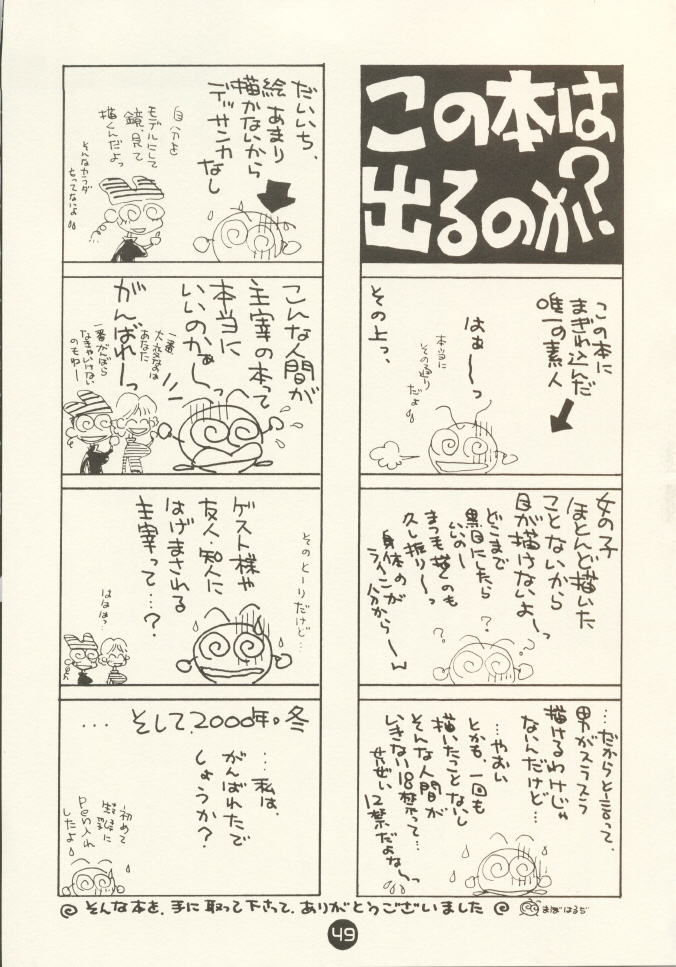 この本は
出るのか?
この本に
まぎれ込んだ
唯一の素人
はぁ〜〜っ
本当に
その通り
だよ
その上っ、
女の子
ほとんど描いた
ことないから
目が描けないよーっ
どこまで
黒目にしたら
いいのー
まつ毛描くのも
久し振り〜っ
身体の
ラインが
分から〜ん
?
?
?
…だからと言って、
男がスラスラ
描けるわけじゃ
ないんだけど…
…やおい
とかも、一回も
描いたことないし
そんな人間が
いきない18禁って…
せいぜい
12禁だよな〜っ
だいいち、
絵あまり
描かないから
デッサンカ
なし
自分を
モデルにして
鏡見て
描くんだよっ
そんなカラダ
もってないよ
こんな人間が
主宰の本って
本当に
いいのかぁ〜っ
がんばれーっ
一番
大変なのは
あなた
一番がんばら
なきゃいけない
のもねー
そのとーりだけど…
ゲスト様や
友人・知人に
はげまされる
主宰って…?
ははは?
…そして、2000年。冬
…私は、
がんばれたで
しょうか?
初めて
Pen入れ
したよ
そんな本を、手に取って下さって、ありがとうございました
まぼはるぢ
49